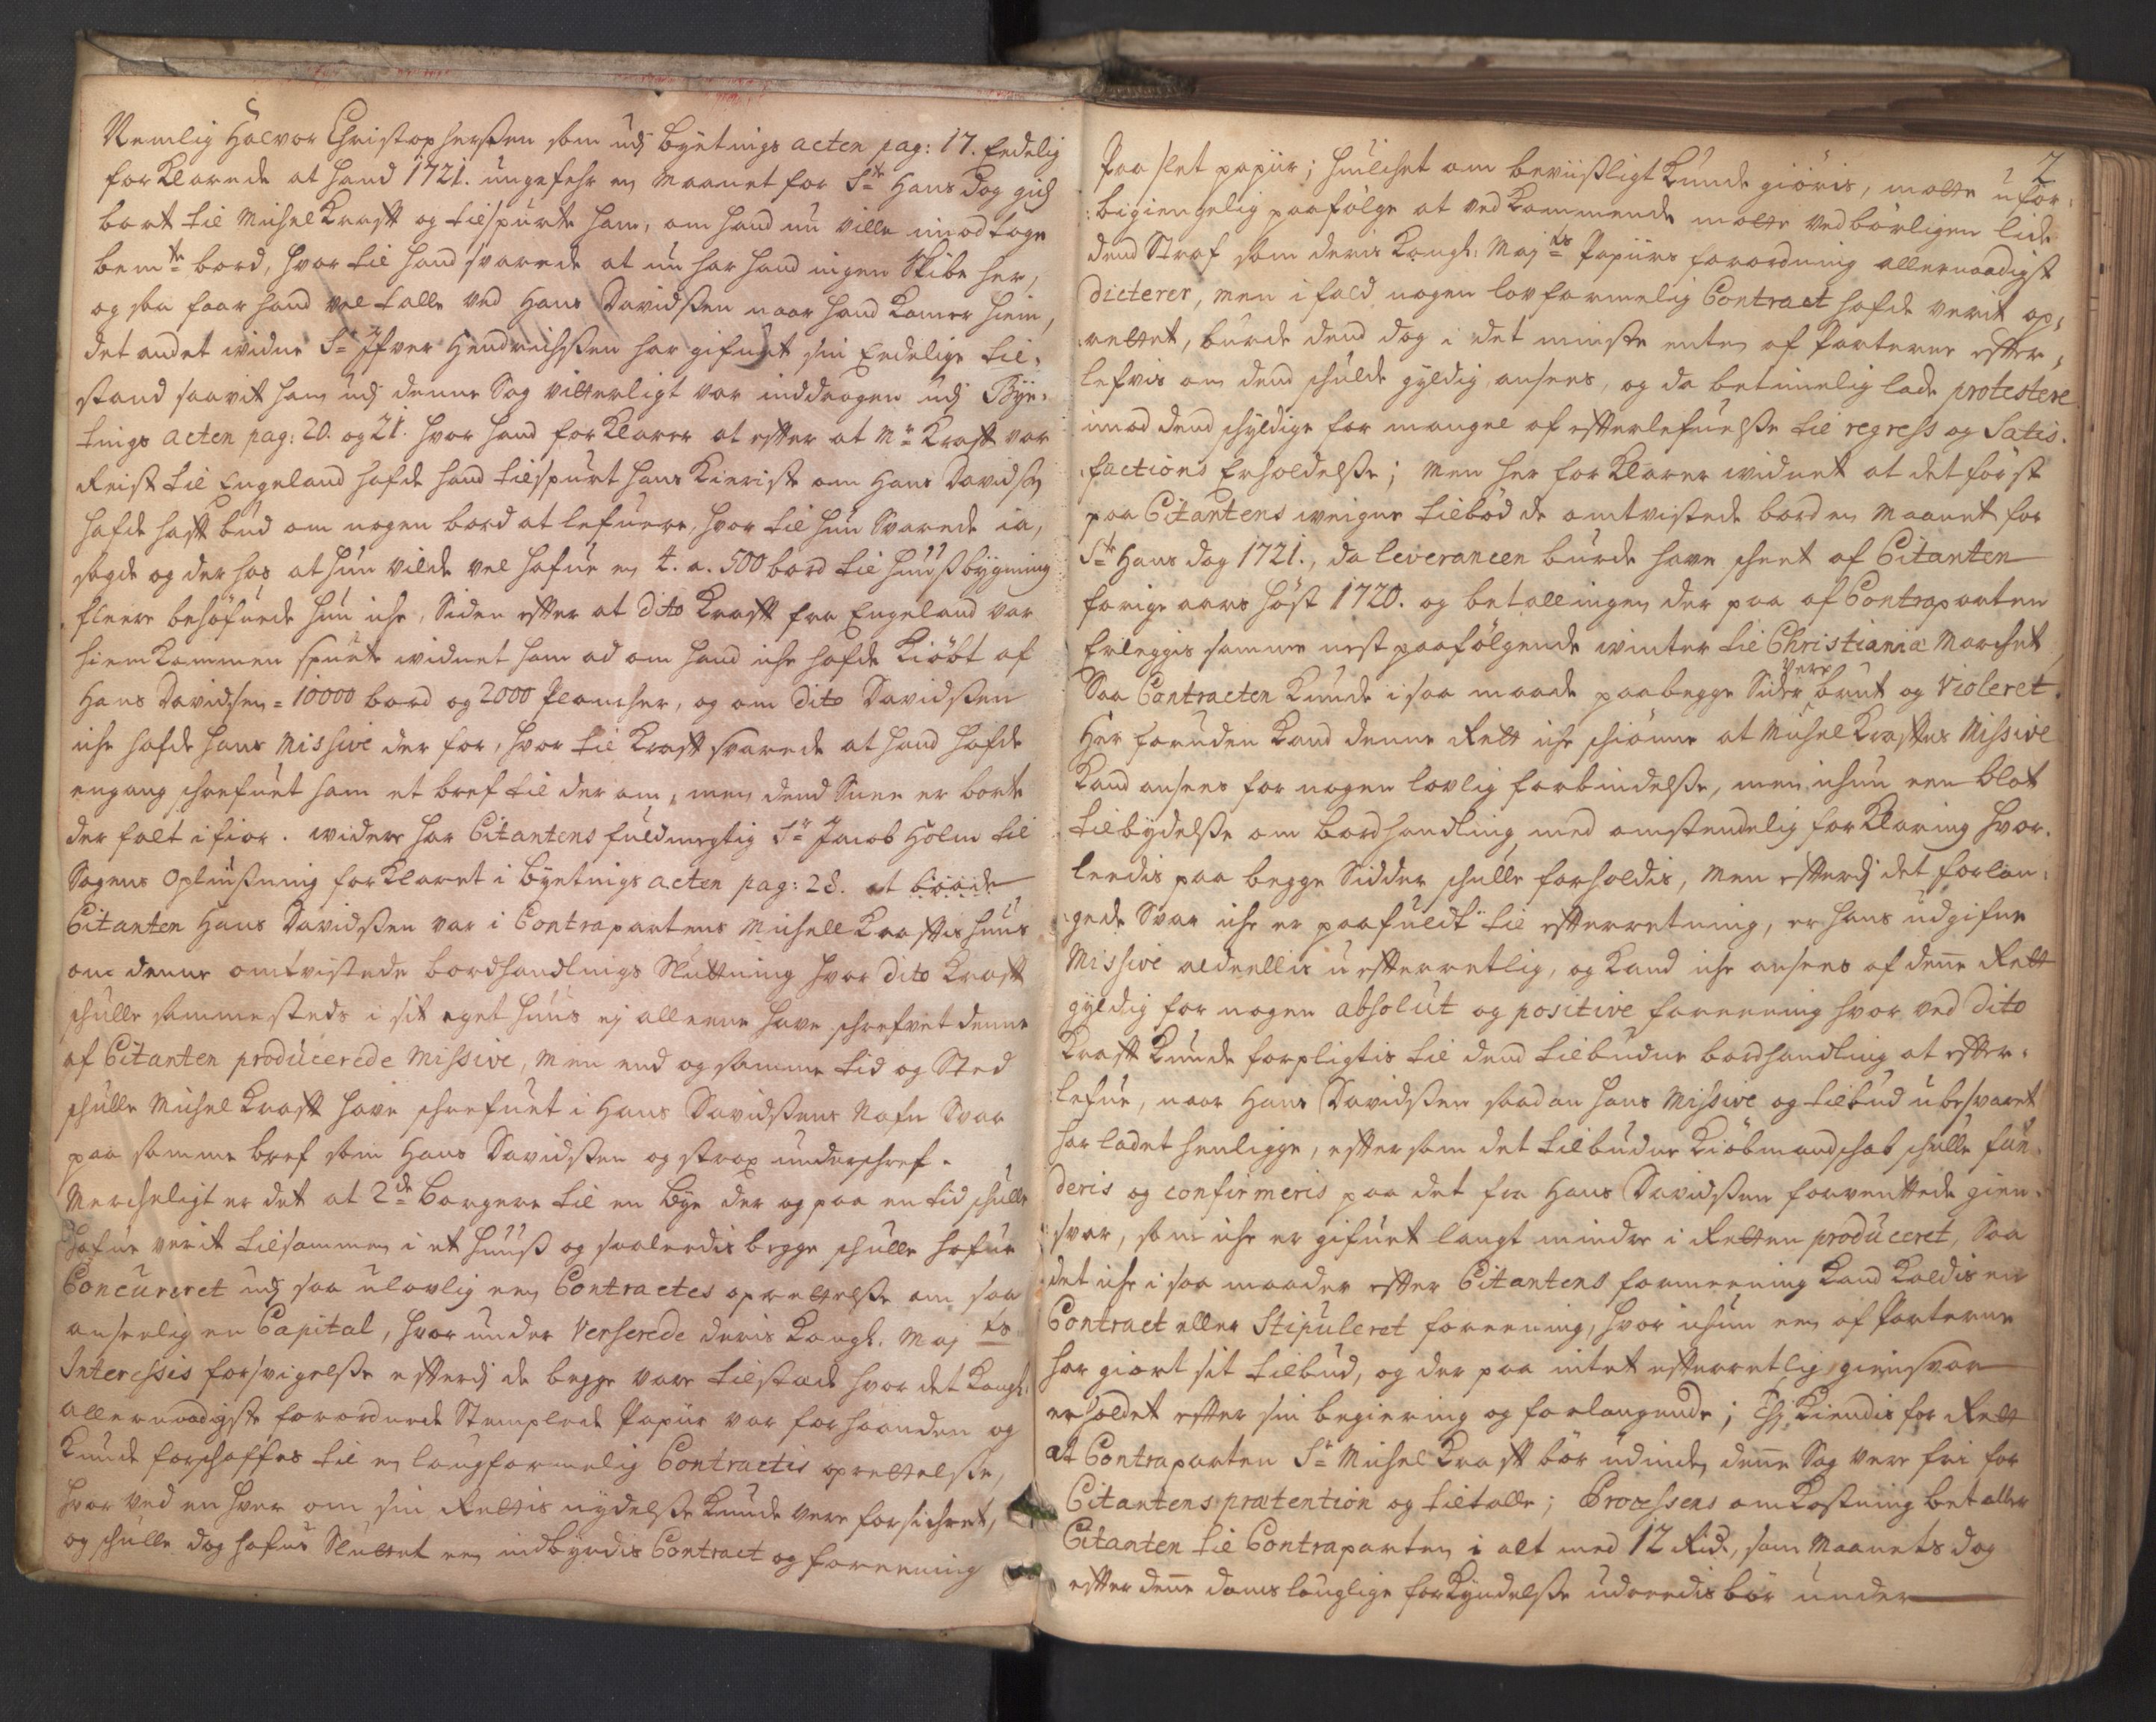 Nemlig Halvor Christophersen som udj Byetings acten pag: 17. Eedelig
forklarede at hand 1721. ungefehr en Maanet for Ste Hans Dag gich
bort til Michel Krafft og tilspurte ham, om hand nu ville imodtage
bemte bord, hvor til hand svarede at nu har hand ingen Skibe her,
og saa faar hand vel talle ved Hans Davidsen naar hand kommer hiem,
det andet widne Sr Ifver Hendrichsen har gifuet sin Eedelige til-
stand saavit ham udj denne Sag vitterligt var inddragen udj Bye-
tings acten pag: 20. og 21. hvor hand forklarer at efter at Mr Krafft var
Reist til Engeland hafde hand tilspurt hans Kieriste om Hans Davidsen
hafde hafft bud om nogen bord at lefuere, hvor til hun svarede ia,
sagde og der hos at hun vilde vel hafue en 4. a. 500 bord til huusbygning
fleere behøfuede hun iche, Siden efter at dito Krafft fra Engeland var
hiemkommen spurte widnet ham ad om hand iche hafde kiøbt af
Hans Davidsen = 10000 bord og 2000 Plancher, og om dito Davidsen
iche hafde hans Missive der for, hvor til Krafft svarede at hand hafde
engang schrefuet ham et bref til der om, men dend Snee er borte
der falt i fior. widere har Citantens fuldmegtig Sr Jacob Holm til
Sagens Opliusning forklaret i Byetings acten pag: 28. at baade
Citanten Hans Davidsen var i Contrapartens Michell Krafftis huus
om denne omtvistede bordhandlings Sluttning hvor dito Krafft
schulle sammesteds i sit eget huus ej alleene have schrefvet denne
af Citanten producerede Missive, Men end og samme tid og Sted
schulle Michel Krafft have schrefuet i Hans Davidsens Nafn Svar
paa samme bref som Hans Davidsen og strax underschref.
Mercheligt er det at 2de borgere til en bye der og paa en tid schulle
hafue verit tilsammen i et huuss og saaledis begge schulle hafue
Concureret udj saa ulovlig en Contractes oprettelse om saa
anseelig en Capital, hvor under Verserede deris Kongl. Majts
Interessis forsvigelse efterdj de begge vare tilstæde hvor det Kongl:
allernaadigste forordnede Stemplede Papiir var forhaanden og
kunde forschaffes til en laugformelig Contractis oprettelse,
hvor ved en hver om sin Rettis nydelse kunde vere forsichret,
og schulle dog hafue Sluttet en indbyrdis Contract og foreening
2
Paa slet papiir; huilchet om beviisligt kunde giøris, motte ufor-
bigiengelig paafølge at vedkommende motte vedbørligen lide
dend Straf som deris Kongl: Majts Papiirs forordning allernaadigst
dicterer, men ifald nogen lovformelig Contract hafde verit op-
rettet, burde dend dog i det minste enten af Parterne efter-
lefvis om dend schulde gyldig ansees, og da betimelig lade protestere
imod dend schyldige for mangel af efterlefuelse til regress og Satis-
factions Erholdelse; Men her forklarer widnet at det først
paa Citantens weigne tilbød de omtvistede bord en Maanet for
Ste Hans dag 1721., da leverancen burde have scheet af Citanten
forige aars høst 1720. og betallingen der paa af Contraparten
Erleggis samme nestpaafølgende winter til Christiania Marchet,
Saa Contracten kunde i saa maade paa begge Sider vere brut og Violeret.
Her foruden kand denne Rett iche schiønne at Michel Krafftes Missive
kand ansees for nogen lovlig forbindelse, men ichun een blot
tilbydelse om bordhandling, med omstendelig forklaring hvor-
leedis paa begge Sidder schulle forholdis, Men efterdj det forlan-
gede Svar iche er paafuldt til efterretning, er hans udgifne
Missive aldeellis uefterretlig, og kand iche ansees af denne Rett
gyldig for nogen absolut og positive foreening hvor ved dito
Krafft kunde forpligtis til dend tilbudne bordhandling at efter-
lefue, naar Hans Davidsen saadan hans Missive og tilbud ubesvaret
har ladet henligge, eftersom det tilbudne kiøbmandschab schulle fun-
deris og confirmeris paa det fra Hans Davidsen forventtede gien-
svar, som iche er gifuet langt mindre i Retten produceret, Saa
det iche i saa maader efter Citantens formeening kand kaldis en
Contract eller Stipuleret foreening, hvor ichun een af Parterne
har giort sit tilbud, og der paa intet efterretlig giensvar
erholdet efter sin begiering og forlangende; Thj kiendis for Rett
at Contraparten Sr Michel Krafft bør udinden denne Sag vere fri for
Citantens prætention og tiltalle; Processens omkostning betaller
Citanten til Contraparten i alt med 12 Rdr, som Maanets dag
efter denne doms lauglige forkyndelse udreedis bør under